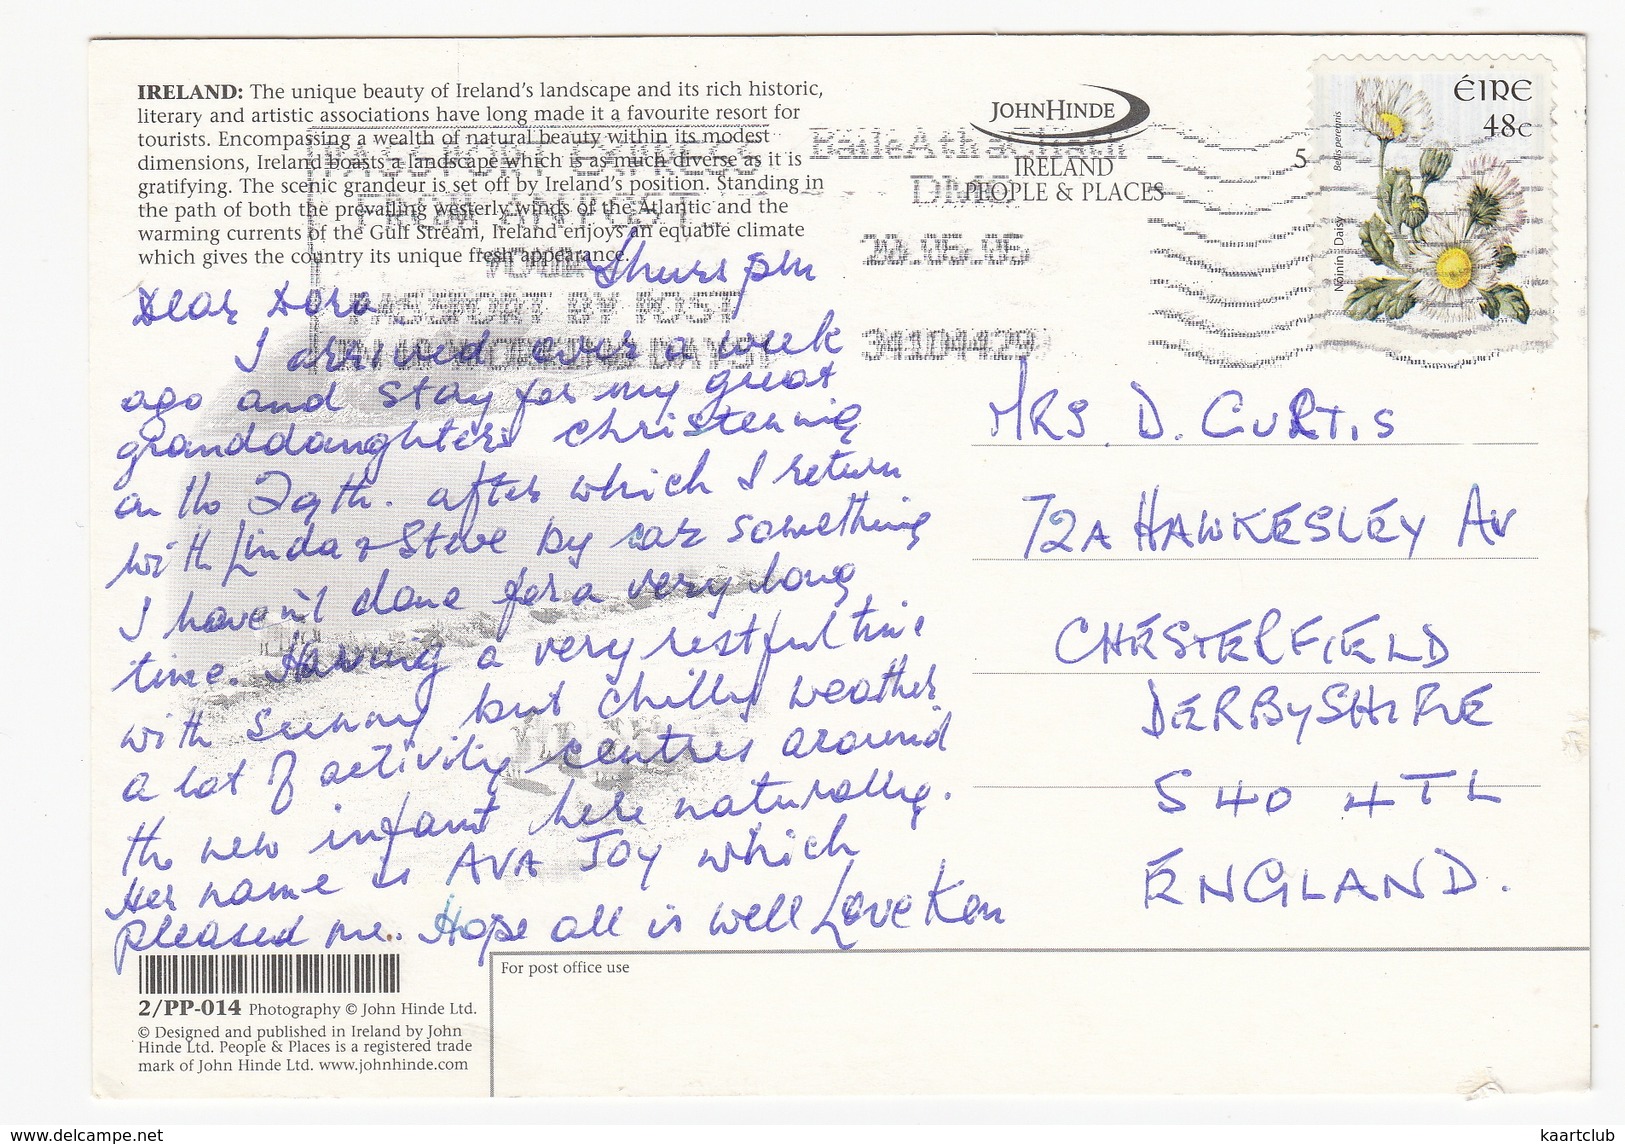 IRELAND: The unique beauty of Ireland's landscape and its rich historic,
literary and artistic associations have long made it a favourite resort for
tourists. Encompassing a wealth of natural beauty within its modest
dimensions, Ireland boasts a landscape which is as much diverse as it is
gratifying. The scenic grandeur is set off by Ireland's position. Standing in
the path of both the prevailing westerly winds of the Atlantic and the
warming currents of the Gulf Stream, Ireland enjoys an equable climate
which gives the country its unique fresh appearance.
Thurs pm
Dear Dora
I arrived over a week
ago and stay for my great
granddaughters christening
on the 29th. after which I return
with Linda & Steve by car something
I haven't done for a very long
time. Having a very restful time
with sunny but chilly weather
a lot of activity centres around
the new infant here naturally.
Her name is AVA JOY which
pleased me. Hope all is well Love Ken
2/PP-014 Photography © John Hinde Ltd.
© Designed and published in Ireland by John
Hinde Ltd. People & Places is a registered trade
mark of John Hinde Ltd. www.johnhinde.com
For post office use
JOHNHINDE
IRELAND
PEOPLE & PLACES
PASSPORT EXPRESS
FROM AN POST
YOUR
PASSPORT BY POST
Baile Átha Cliath
DMC
20.05.05
5
ÉIRE
48c
Bellis perennis
Nóinín Daisy
MRS. D. CURTIS
72A HAWKESLEY AV
CHESTERFIELD
DERBYSHIRE
S40 4TL
ENGLAND.
kaartclub
www.delcampe.net